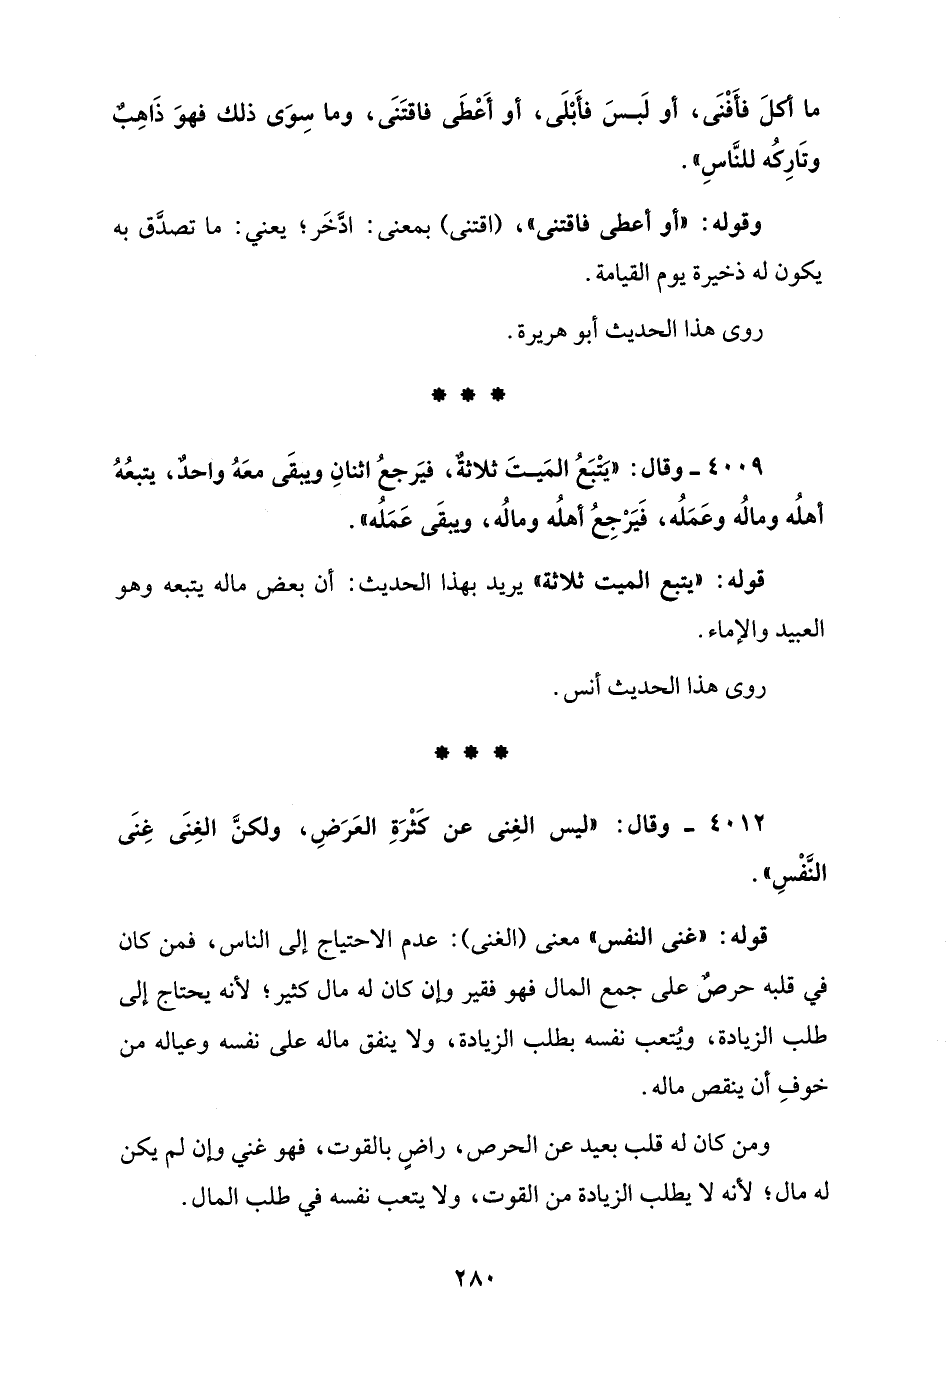 ما أكلَ فأَفْنَى، أو لَبسَ فأَبْلَى، أو أَعْطَى فاقتَنَى، وما سِوَى ذلك فهوَ ذَاهِبٌ
وتَارِكُه للنَّاسِ».
وقوله: «أو أعطى فاقتنى»، (اقتنى) بمعنى: ادَّخَر؛ يعني: ما تصدَّق به
يكون له ذخيرة يوم القيامة.
روى هذا الحديث أبو هريرة.
* * *
٤٠٠٩ ـ وقال: «يَتْبَعُ المَيتَ ثلاثةٌ، فيَرجعُ اثنانِ ويبقَى معَهُ واحدٌ، يتبعُهُ
أهلُه ومالُه وعَمَلُه، فَيَرْجِعُ أهلُه ومالُه، ويبقَى عَمَلُه».
قوله: «يتبع الميت ثلاثة» يريد بهذا الحديث: أن بعض ماله يتبعه وهو
العبيد والإماء.
روى هذا الحديث أنس.
* * *
٤٠١٢ ـ وقال: «ليس الغِنى عن كَثْرَةِ العَرَضِ، ولكنَّ الغِنَى غِنَى
النَّفْسِ».
قوله: «غنى النفس» معنى (الغنى): عدم الاحتياج إلى الناس، فمن كان
في قلبه حرصٌ على جمع المال فهو فقير وإن كان له مال كثير؛ لأنه يحتاج إلى
طلب الزيادة، ويُتعب نفسه بطلب الزيادة، ولا ينفق ماله على نفسه وعياله من
خوفِ أن ينقص ماله.
ومن كان له قلب بعيد عن الحرص، راضٍ بالقوت، فهو غني وإن لم يكن
له مال؛ لأنه لا يطلب الزيادة من القوت، ولا يتعب نفسه في طلب المال.
٢٨٠